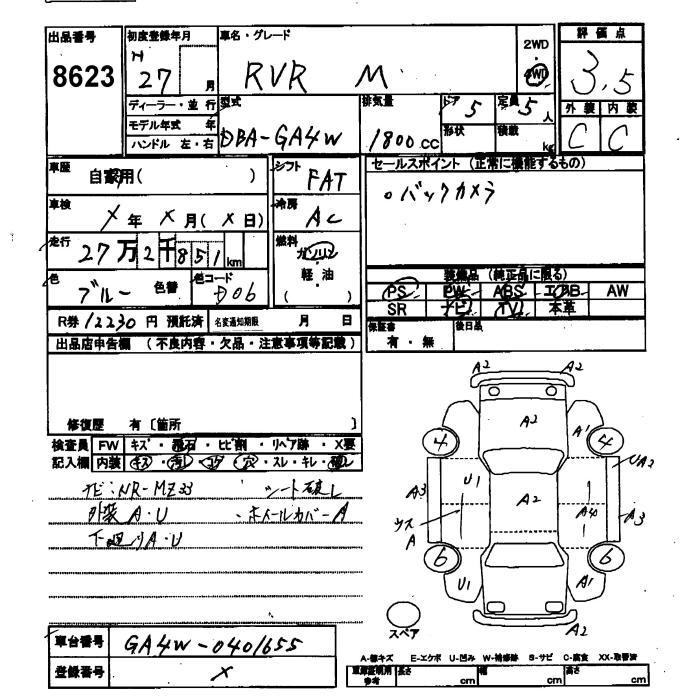 出品番号 初度登録年月 車名・グレード 2WD 評価点
8623 H 27 月 RVR M 4WD 3.5
ディーラー・並行 型式 排気量 ドア 5 定員 5 人 外装 内装
モデル年式 年 DBA-GA4W 1800 CC 形状 積載 kg C C
ハンドル 左・右
車歴 自家用( ) シフト FAT セールスポイント (正常に機能するもの)
車検 X 年 X 月 (X 日) 冷房 AC ○バックカメラ
走行 27 万 2 千 851 km 燃料 ガソリン 軽・油 ( )
色 ブルー 色替 色コード D06 装備品 (純正品に限る)
PS PW ABS エアB AW
SR ナビ TV 本革
R券 12230 円 預託済 名変通知期限 月 日 保証書 有・無 後日品
出品店申告欄 (不良内容・欠品・注意事項等記載)
修復歴 有 [箇所 ]
検査員 FW キズ・飛石・ヒビ割・リペア跡・X要
記入欄 内装 キズ・汚レ・コゲ・穴・スレ・キレ・破レ
ナビ:NR-MZ33 シート破レ
外装 A・U ・ホイールカバーA
下廻りA・U
A2 A2
A2
4 A1 4
U1 UA2
A3 A2 A40 A3
ウス A
6 6
U1 A1
A2
スペア
車台番号 GA4W-0401655
登録番号 X
A-線キズ E-エクボ U-凹み W-補修跡 S-サビ C-腐食 XX-取替済
車庫証明用参考 長さ cm 幅 cm 高さ cm